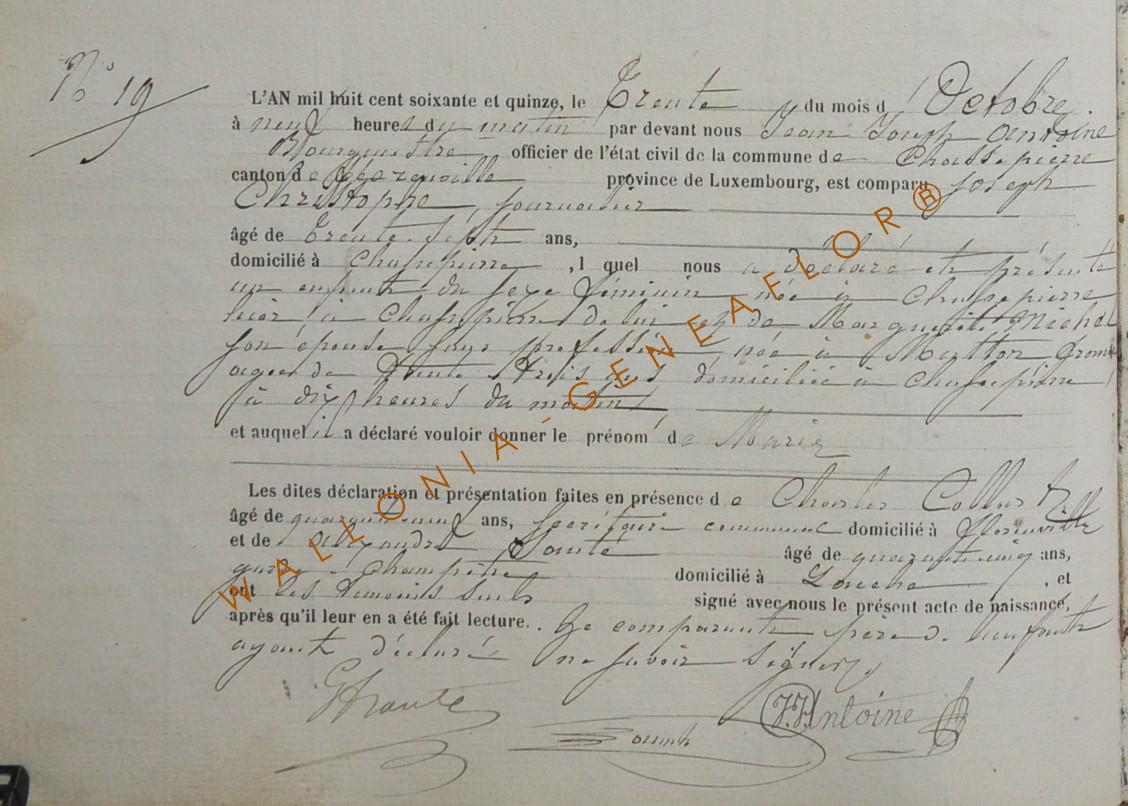 N° 19
L'AN mil huit cent soixante et quinze, le Trente du mois d'Octobre.
à neuf heures du matin par devant nous Jean Joseph Antoine
Bourgmestre officier de l'état civil de la commune de Chassepierre
canton de province de Luxembourg, est comparu Joseph
Christophe, journalier
âgé de trente-sept ans,
domicilié à Chassepierre, l quel nous a déclaré et présenté
un enfant du sexe féminin née à Chassepierre
hier à Chassepierre de lui et de Marguerite Michel
son épouse sans profession, née à
agée de trente trois ans domiciliée à chassepierre
à dix heures du matin
et auquel il a déclaré vouloir donner le prénom de Marie
Les dites déclaration et présentation faites en présence de Charles
âgé de ans, secrétaire communal domicilié à Florenville
et de Alexandre âgé de quarante cinq ans,
garde Champêtre domicilié à , et
ont les témoins seuls signé avec nous le présent acte de naissance,
après qu'il leur en a été fait lecture. Le comparant père de l'enfant
ayant déclaré ne savoir signer.
J.J. Antoine
WALLONIA-GENEAFLOR®